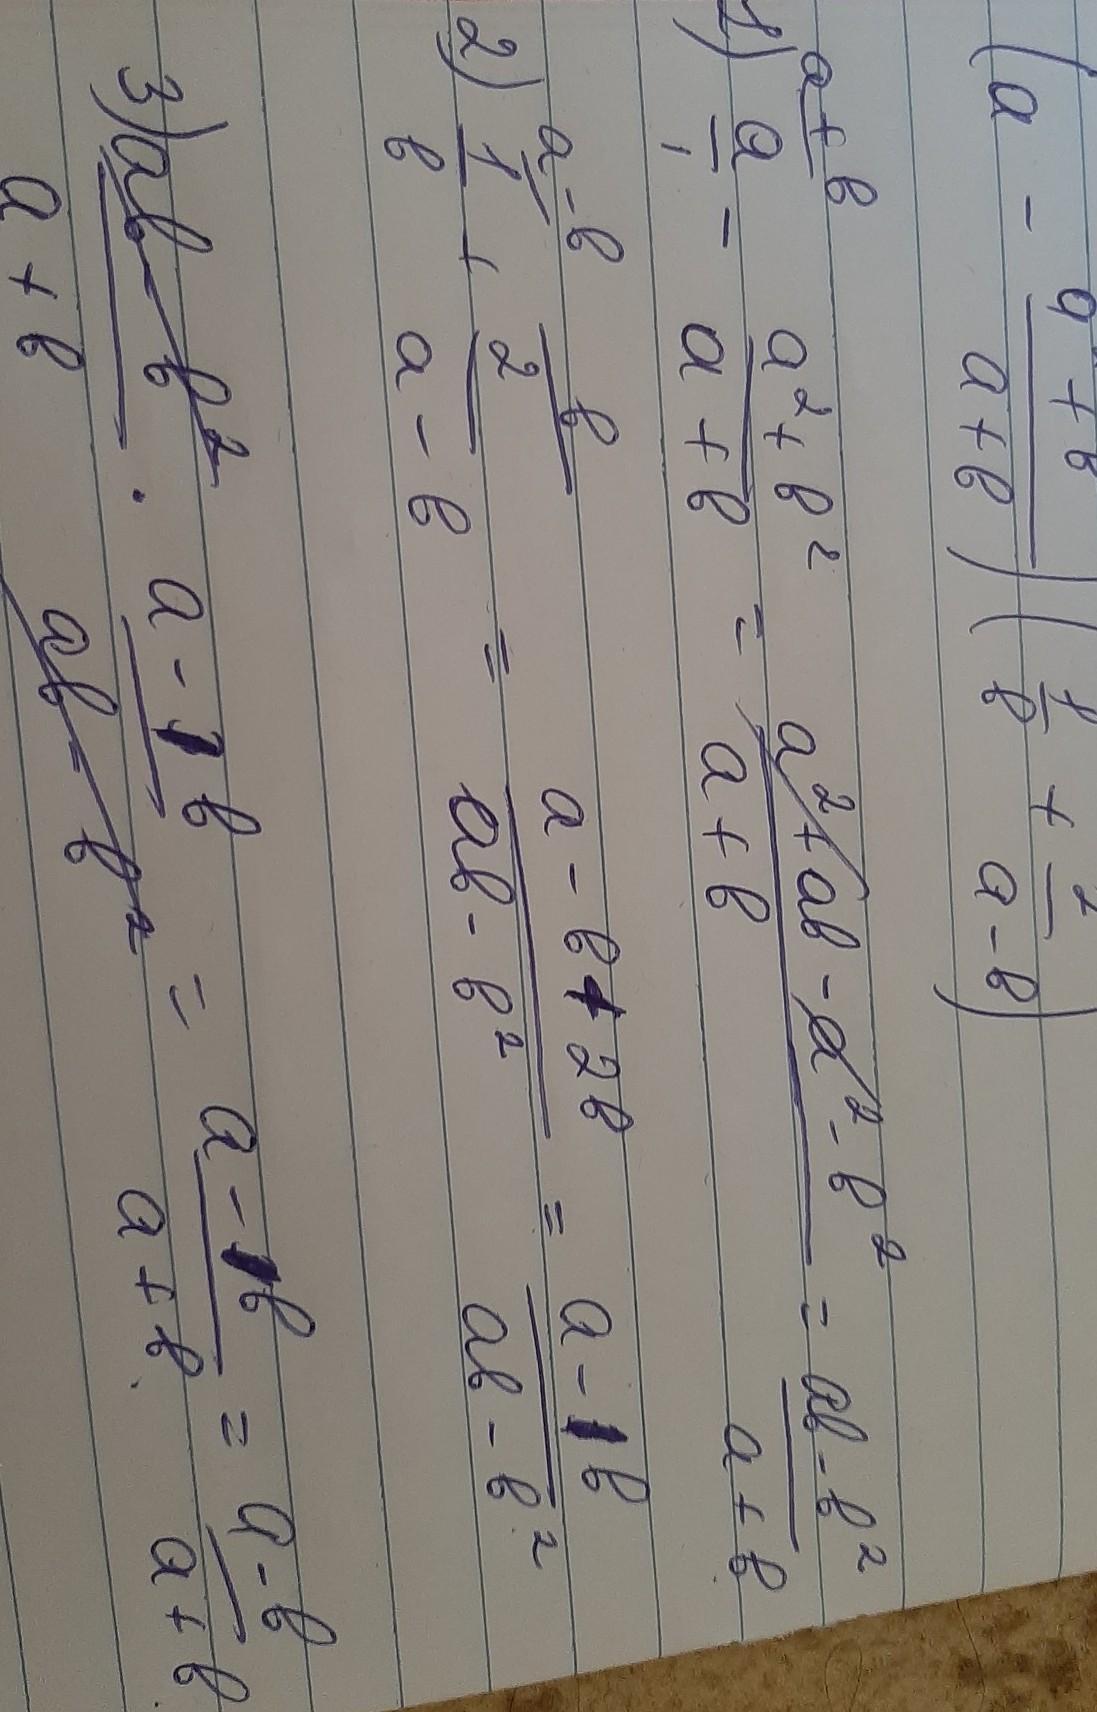 (a - (a² + b²)/(a + b)) (1/b + 2/(a - b))
1) a/1 ^(a + b) - (a² + b²)/(a + b) = (a² + ab - a² - b²)/(a + b) = (ab - b²)/(a + b)
2) 1/b ^(a - b) + 2/(a - b) ^b = (a - b + 2b)/(ab - b²) = (a - 1b)/(ab - b²)
3) (ab - b²)/(a + b) · (a - 1b)/(ab - b²) = (a - 1b)/(a + b) = (a - b)/(a + b)